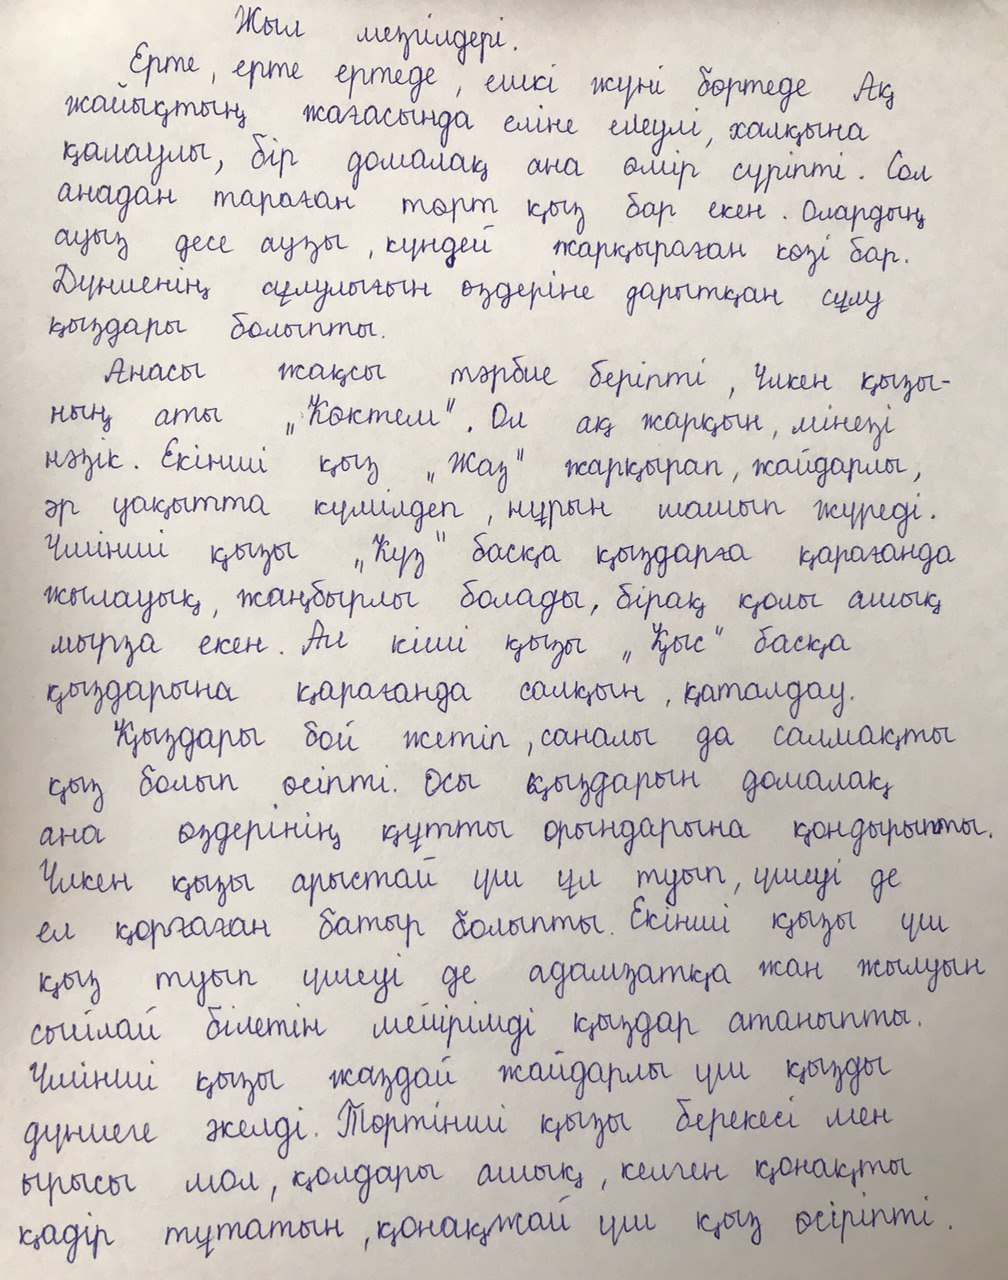 Жыл мезгілдері.
Ерте, ерте ертеде, ешкі жүні бөртеде Ақ
жайықтың жағасында еліне елеулі, халқына
қалаулы, бір домалақ ана өмір сүріпті. Сол
анадан тараған төрт қыз бар екен. Олардың
ауыз десе аузы, күндей жарқыраған көзі бар.
Дүниенің сұлулығын өздеріне дарытқан сұлу
қыздары болыпты.
Анасы жақсы тәрбие беріпті, Үлкен қызы-
ның аты „Көктем". Ол ақ жарқын, мінезі
нәзік. Екінші қыз „Жаз" жарқырап, жайдарлы,
әр уақытта күлімдеп, нұрын шашып жүреді.
Үшінші қызы „Күз" басқа қыздарға қарағанда
жылауық, жаңбырлы болады, бірақ қолы ашық
мырза екен. Ал кіші қызы „Қыс" басқа
қыздарына қарағанда салқын, қаталдау.
Қыздары бой жетіп, саналы да салмақты
қыз болып өсіпті. Осы қыздарын домалақ
ана өздерінің құтты орындарына қондырыпты.
Үлкен қызы арыстай үш ұл туып, үшеуі де
ел қорғаған батыр болыпты. Екінші қызы үш
қыз туып үшеуі де адамзатқа жан жылуын
сыйлай білетін мейірімді қыздар атаныпты.
Үшінші қызы жаздай жайдарлы үш қызды
дүниеге әкелді. Төртінші қызы берекесі мен
ырысы мол, қолдары ашық, келген қонақты
қадір тұтатын, қонақжай үш қыз өсіріпті.